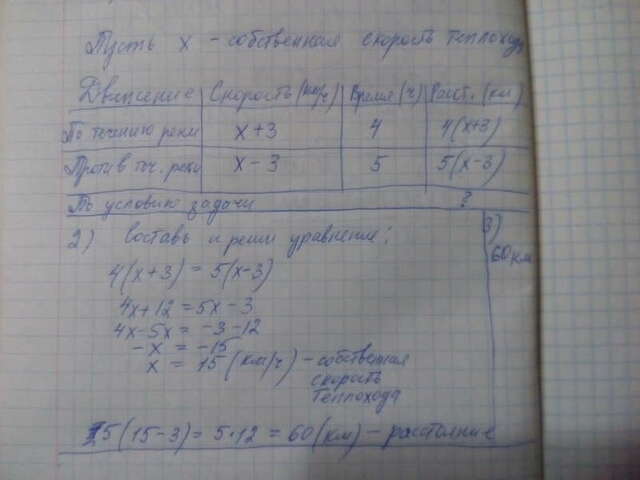 Пусть x - собственная скорость теплохода
Движение Скорость (км/ч) Время (ч) Расст. (км)
По течению реки x+3 4 4(x+3)
Против теч. реки x-3 5 5(x-3)
По условию задачи ?
2) Составь и реши уравнение: 3)
60 км
4(x+3) = 5(x-3)
4x+12 = 5x-3
4x-5x = -3-12
-x = -15
x = 15 (км/ч) - собственная
скорость
теплохода
5(15-3) = 5·12 = 60 (км) - расстояние